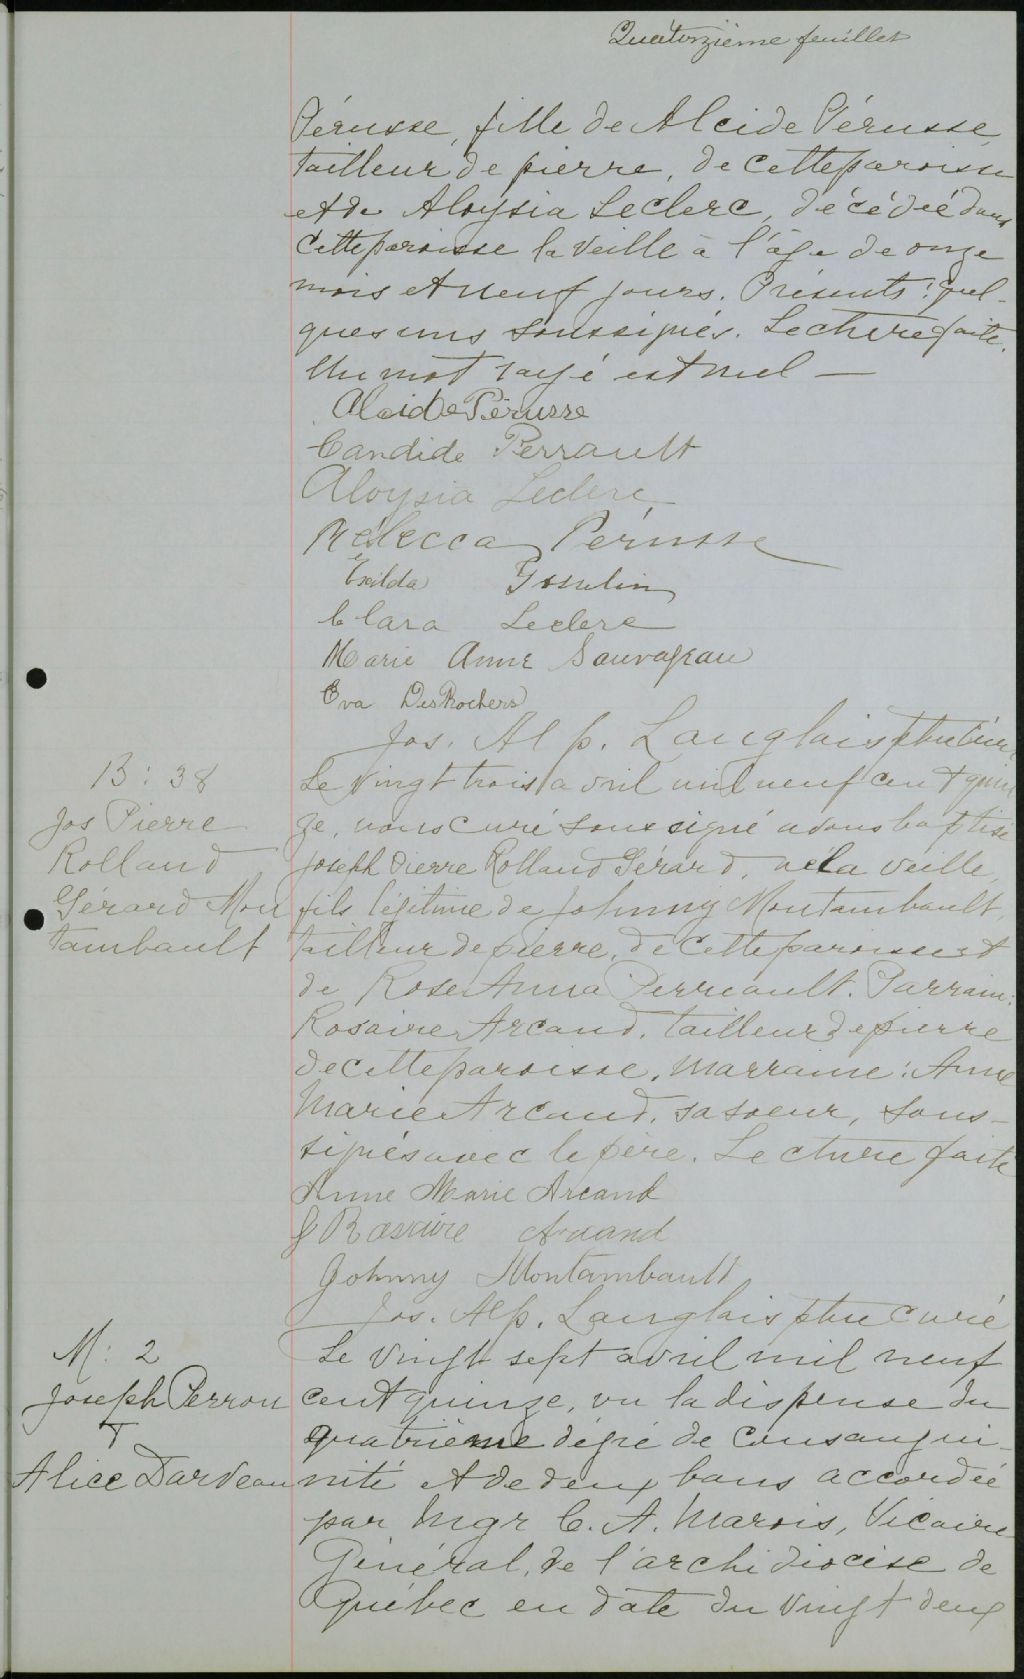 Quatorzième feuillet
Pérusse, fille de Alcide Pérusse,
tailleur de pierre, de cette paroisse
et de Aloysia Leclerc, décédée dans
cette paroisse la veille à l'âge de onze
mois et neuf jours. Présents: quel-
ques uns soussignés. Lecture faite.
Un mot rayé est nul —
Alcide Pérusse
Candide Perrault
Aloysia Leclerc
Rébecca Pérusse
Exilda Gosselin
Clara Leclerc
Marie Anne Sauvageau
Eva DesRochers
Jos. Alp. Langlais ptre curé
B: 38
Jos Pierre
Rolland
Gérard Mon
tambault
Le vingt trois avril mil neuf cent quin
ze, nous curé soussigné avons baptisé
Joseph Pierre Rolland Gérard, né la veille,
fils légitime de Johnny Montambault,
tailleur de pierre, de cette paroisse et
de Rose Anna Perreault. Parrain:
Rosaire Arcand, tailleur de pierre
de cette paroisse, marraine: Anne
Marie Arcand, sa soeur, sous-
signés avec le père. Lecture faite
Anne Marie Arcand
J Rosaire Arcand
Johnny Montambault
Jos. Alp. Langlais ptre curé
M: 2
Joseph Perron
+
Alice Dardeau
Le vingt sept avril mil neuf
cent quinze, vu la dispense du
quatrième dégré de consangui-
nité et de deux bans accordée
par Mgr C. A. Marois, Vicaire
Général, de l'archidiocèse de
Québec en date du vingt deux